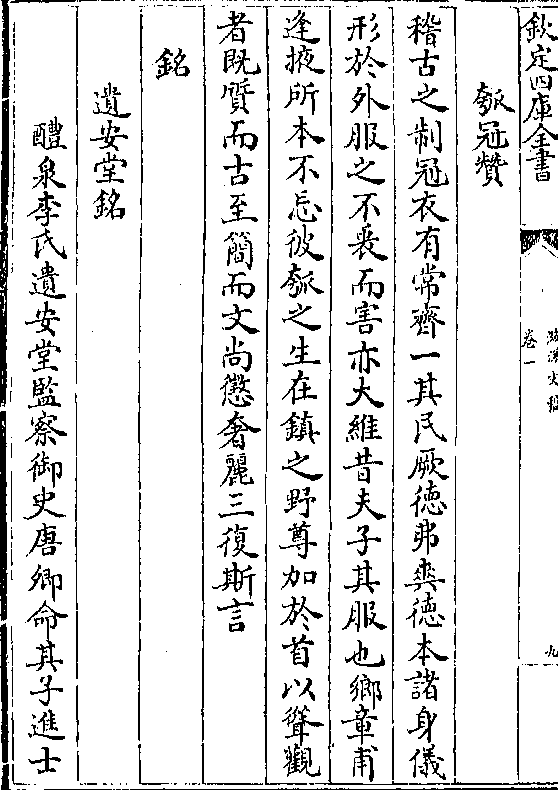 欽定四庫全書
卷一
九
瓠冠贊
稽古之制冠衣有常齊一其民厥德弗爽德本諸身儀
形於外服之不衷而害亦大維昔夫子其服也鄉章甫
逢掖所本不忘彼瓠之生在鎮之野尊加於首以聳觀
者既質而古至簡而文尚懲奢麗三復斯言
銘
遺安堂銘
醴泉李氏遺安堂監察御史唐卿命其子進士